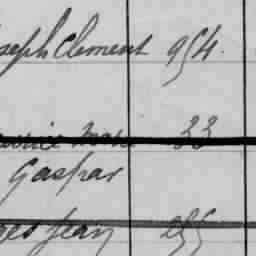 seph Clement 954.
Marc 33
Gaspar
ges Jean 255